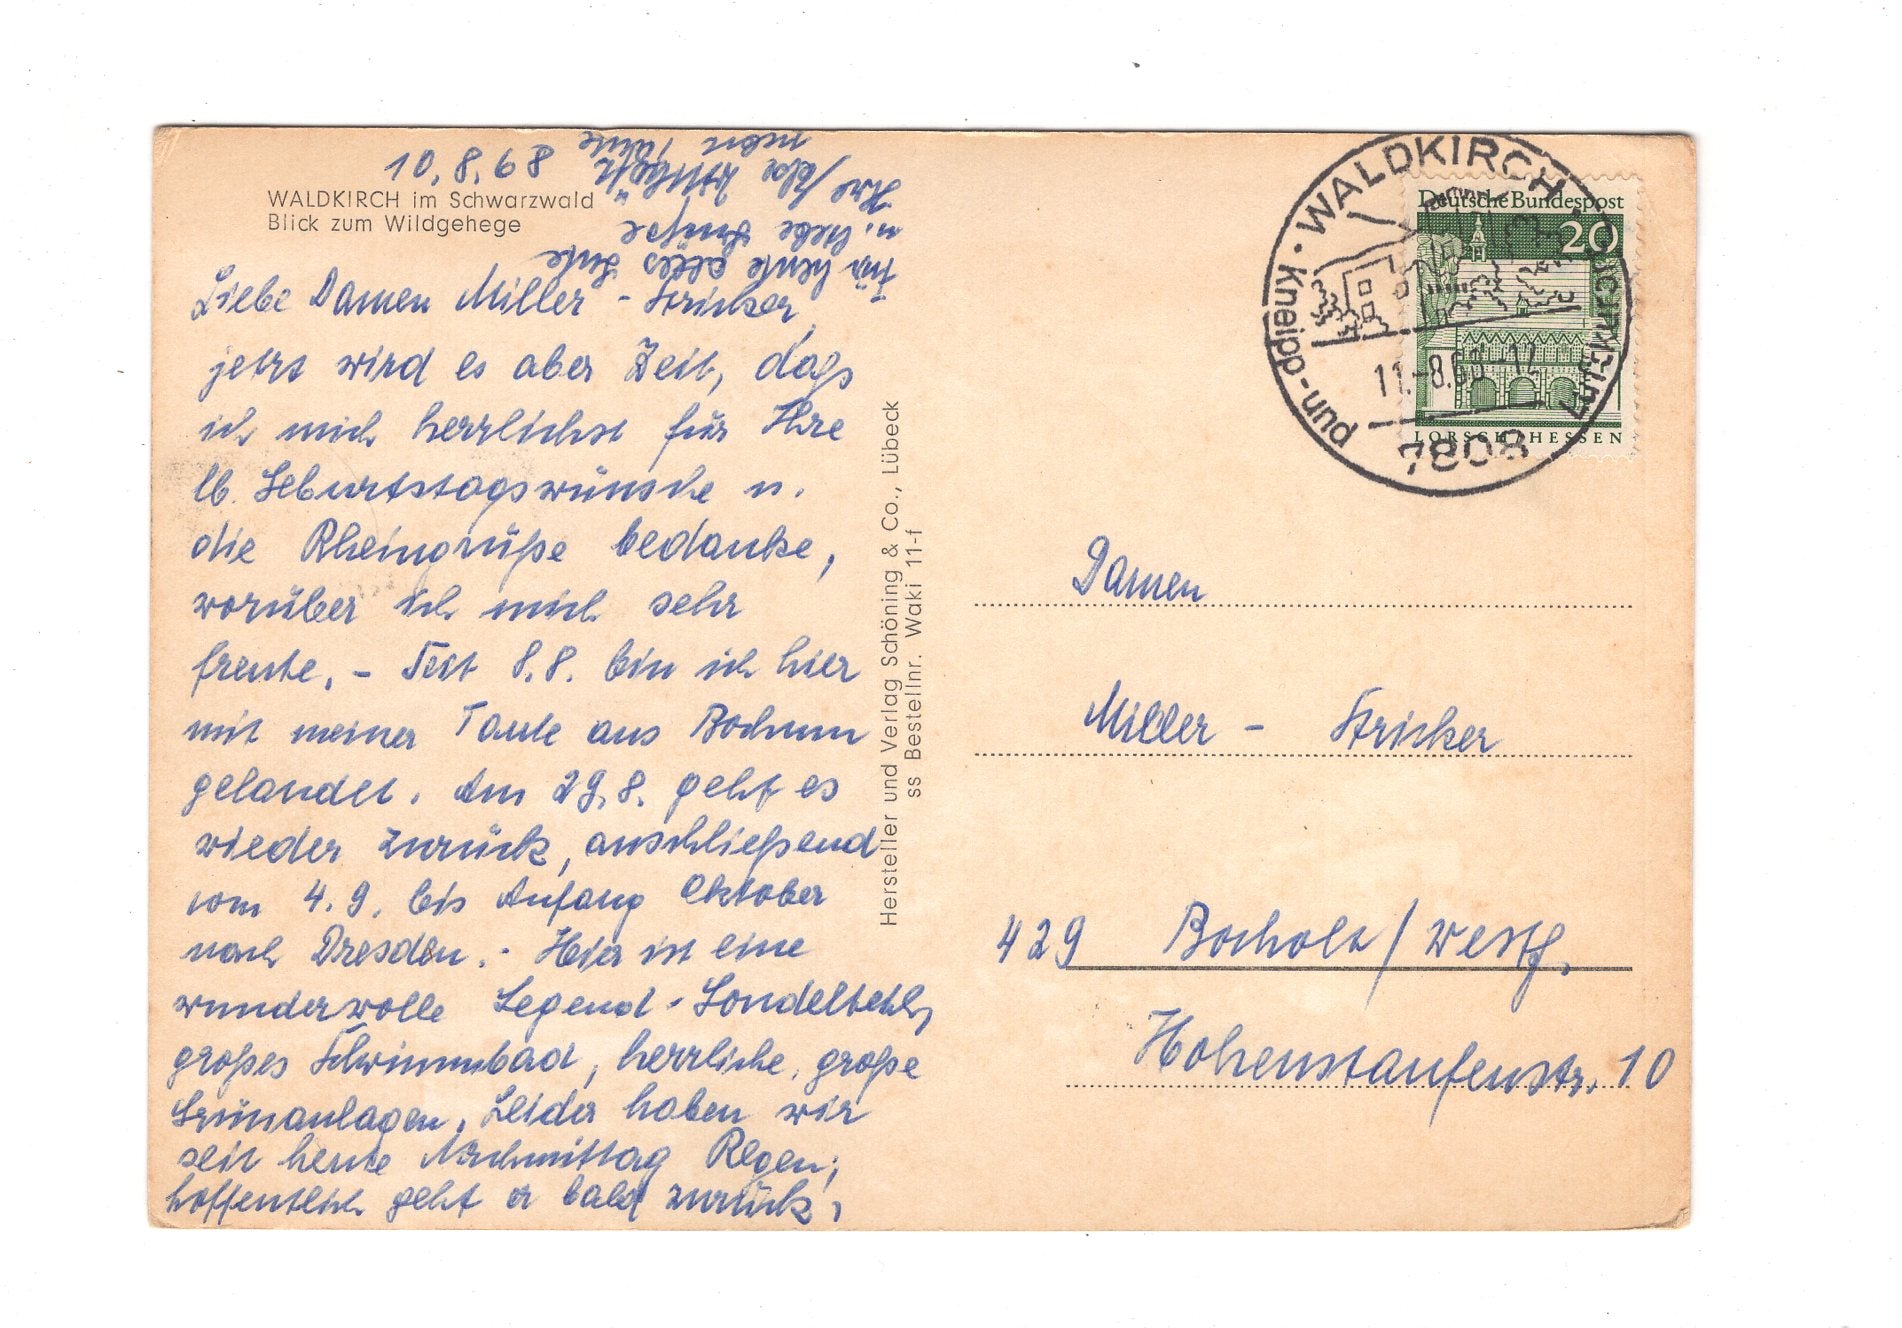 10.8.68
WALDKIRCH im Schwarzwald
Blick zum Wildgehege
Liebe Damen Miller - Stricker,
jetzt wird es aber Zeit, daß
ich mich herrlichst für Ihre
lb. Geburtstagswünsche u.
die Rheingrüße bedanke,
worüber ich mich sehr
freute. - Seit 8.8. bin ich hier
mit meiner Tante aus Bochum
gelandet. Am 29.8. geht es
wieder zurück, anschließend
vom 4.9. bis Anfang Oktober
nach Dresden. - Hier ist eine
wundervolle Gegend,
großes Schwimmbad, herrliche, große
Grünanlagen. Leider haben wir
seit heute Nachmittag Regen;
hoffentlich geht er bald zurück.
Für heute alles Gute
u. liebe Grüße
Ihre
nebst Tante
Hersteller und Verlag Schöning & Co., Lübeck
ss Bestellnr. Waki 11-f
WALDKIRCH
Kneipp- und Luftkurort
11.-8.68-12
7808
Deutsche Bundespost
20
LORSCH HESSEN
Damen
Miller - Stricker
429 Bocholt / Westf.
Hohenstaufenstr. 10